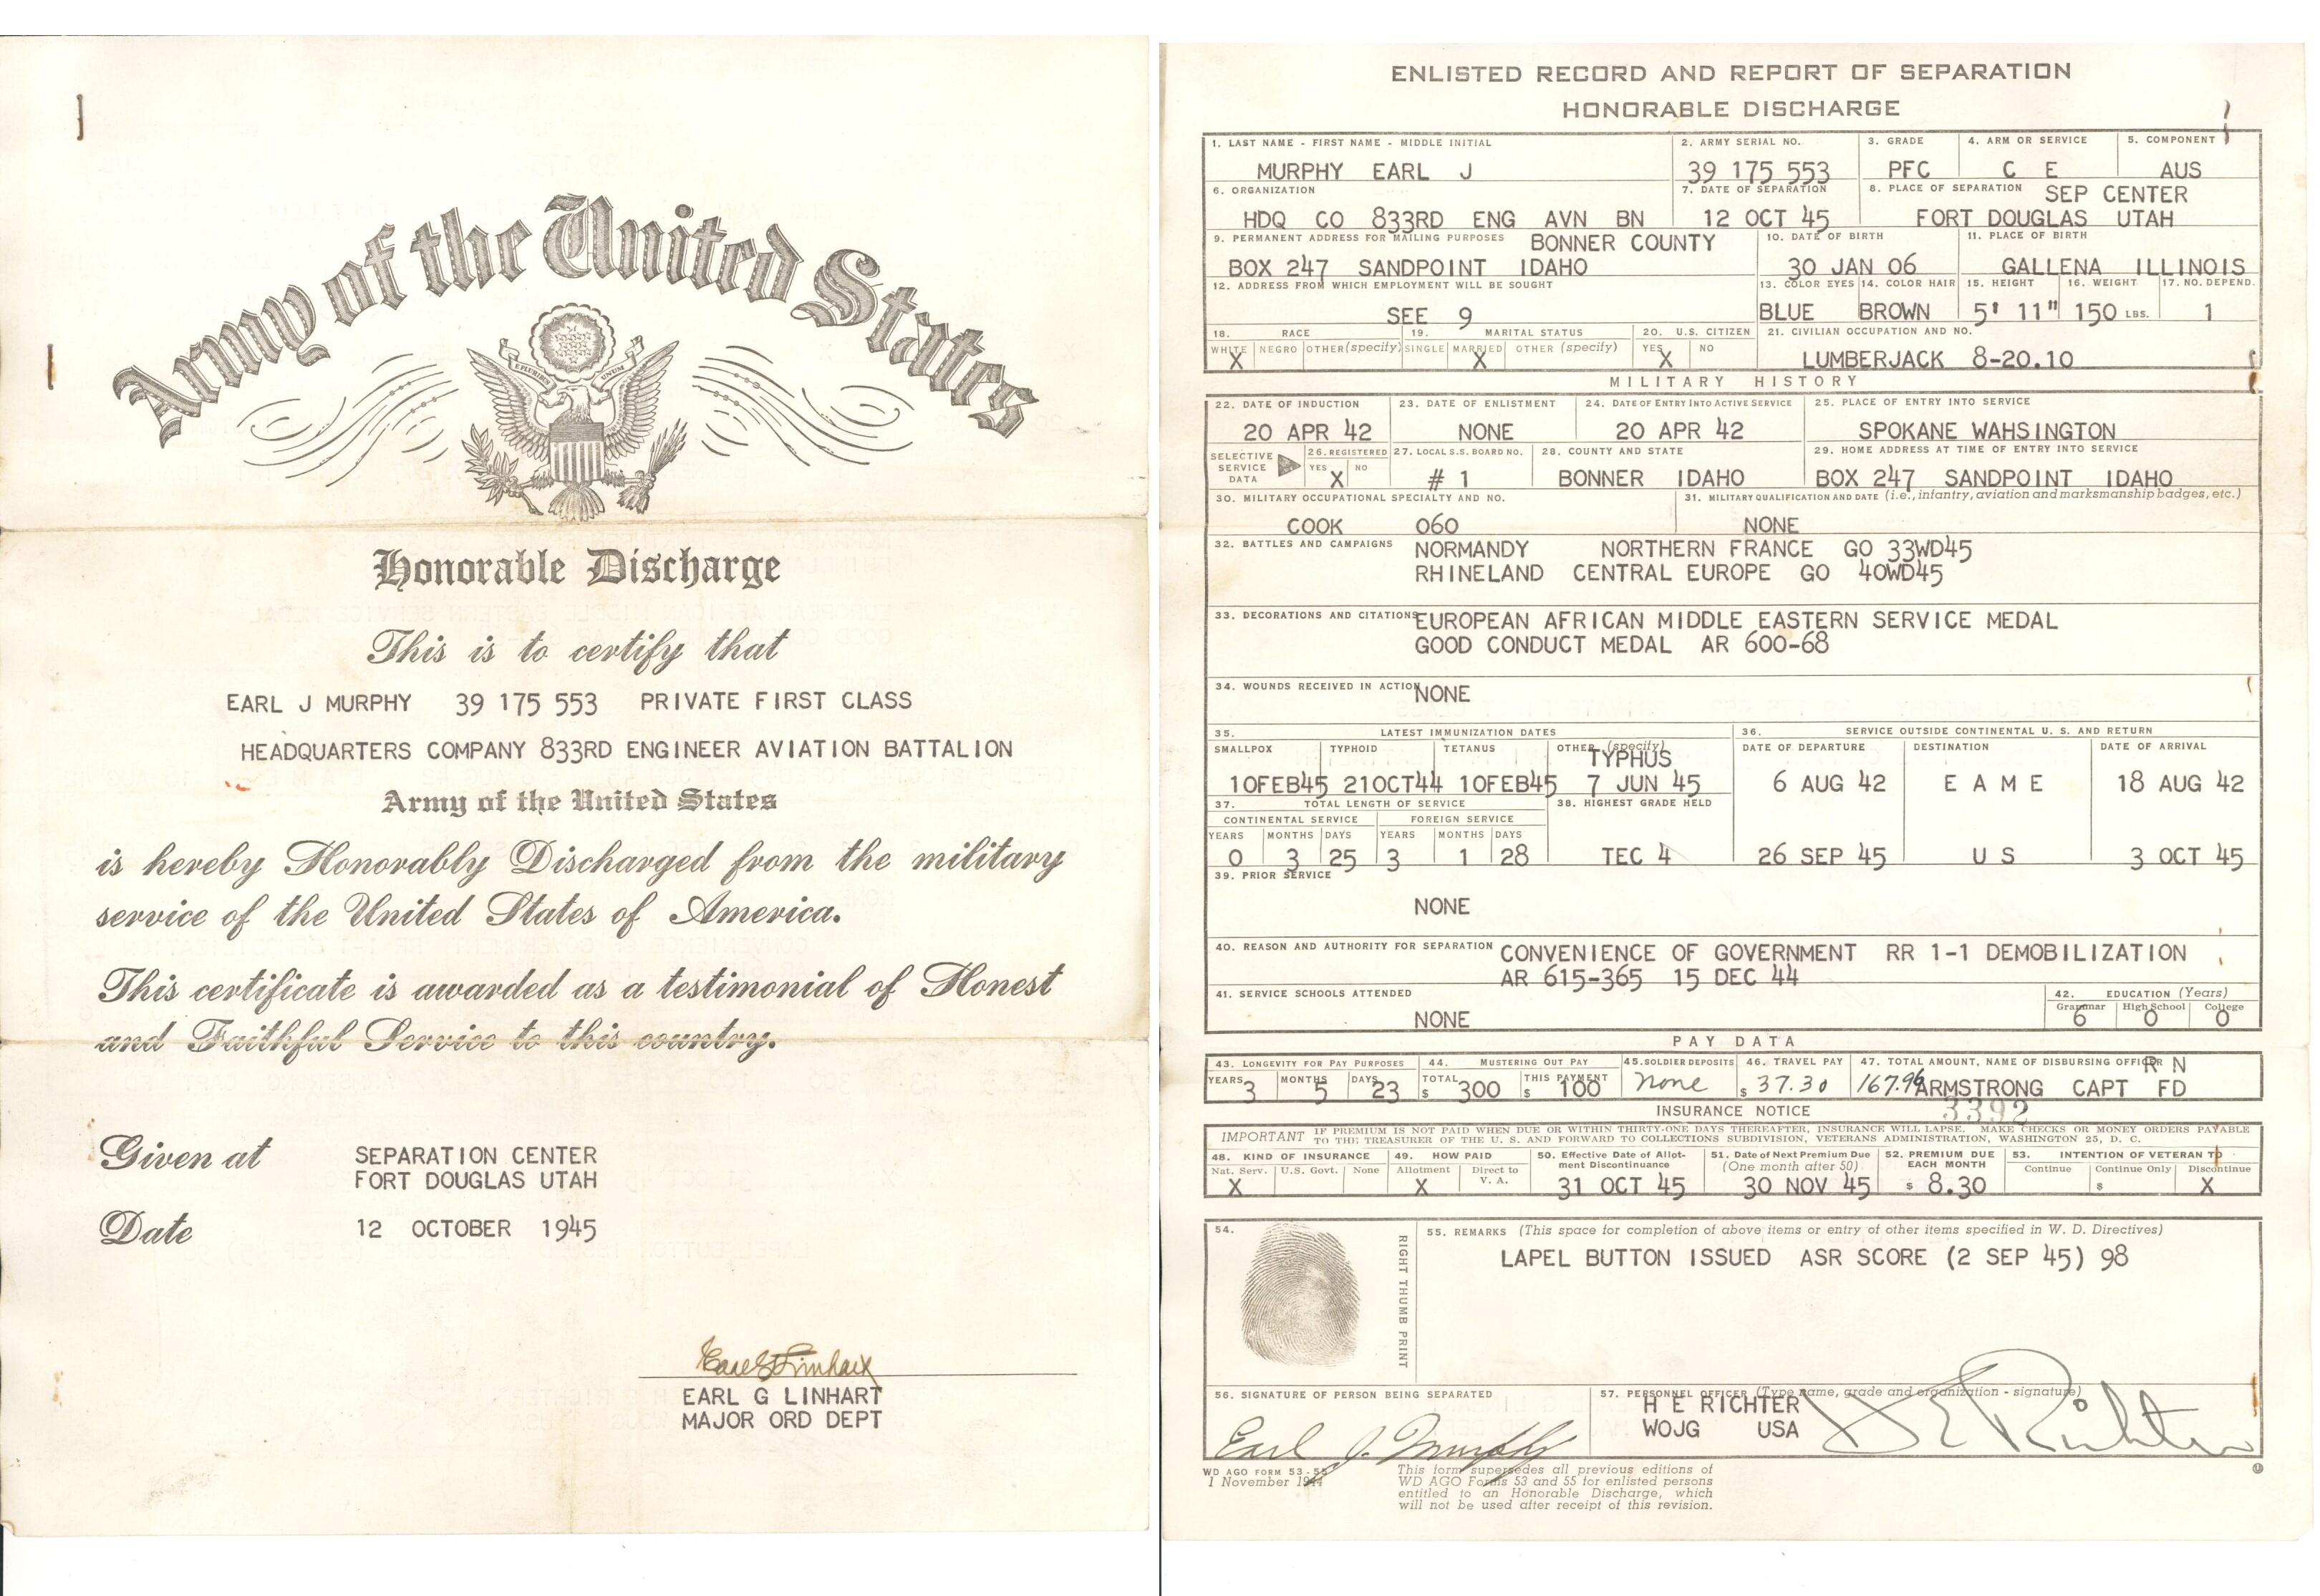 Army of the United States
E PLURIBUS UNUM
Honorable Discharge
This is to certify that
EARL J MURPHY 39 175 553 PRIVATE FIRST CLASS
HEADQUARTERS COMPANY 833RD ENGINEER AVIATION BATTALION
Army of the United States
is hereby Honorably Discharged from the military
service of the United States of America.
This certificate is awarded as a testimonial of Honest
and Faithful Service to this country.
Given at SEPARATION CENTER
FORT DOUGLAS UTAH
Date 12 OCTOBER 1945
Earl G Linhart
EARL G LINHART
MAJOR ORD DEPT
ENLISTED RECORD AND REPORT OF SEPARATION
HONORABLE DISCHARGE
1. LAST NAME - FIRST NAME - MIDDLE INITIAL 2. ARMY SERIAL NO. 3. GRADE 4. ARM OR SERVICE 5. COMPONENT
MURPHY EARL J 39 175 553 PFC C E AUS
6. ORGANIZATION 7. DATE OF SEPARATION 8. PLACE OF SEPARATION SEP CENTER
HDQ CO 833RD ENG AVN BN 12 OCT 45 FORT DOUGLAS UTAH
9. PERMANENT ADDRESS FOR MAILING PURPOSES BONNER COUNTY 10. DATE OF BIRTH 11. PLACE OF BIRTH
BOX 247 SANDPOINT IDAHO 30 JAN 06 GALLENA ILLINOIS
12. ADDRESS FROM WHICH EMPLOYMENT WILL BE SOUGHT 13. COLOR EYES 14. COLOR HAIR 15. HEIGHT 16. WEIGHT 17. NO. DEPEND.
SEE 9 BLUE BROWN 5' 11" 150 LBS. 1
18. RACE 19. MARITAL STATUS 20. U.S. CITIZEN 21. CIVILIAN OCCUPATION AND NO.
WHITE NEGRO OTHER (specify) SINGLE MARRIED OTHER (specify) YES NO
X X X LUMBERJACK 8-20.10
MILITARY HISTORY
22. DATE OF INDUCTION 23. DATE OF ENLISTMENT 24. DATE OF ENTRY INTO ACTIVE SERVICE 25. PLACE OF ENTRY INTO SERVICE
20 APR 42 NONE 20 APR 42 SPOKANE WAHSINGTON
SELECTIVE SERVICE DATA 26. REGISTERED 27. LOCAL S.S. BOARD NO. 28. COUNTY AND STATE 29. HOME ADDRESS AT TIME OF ENTRY INTO SERVICE
YES NO
X # 1 BONNER IDAHO BOX 247 SANDPOINT IDAHO
30. MILITARY OCCUPATIONAL SPECIALTY AND NO. 31. MILITARY QUALIFICATION AND DATE (i.e., infantry, aviation and marksmanship badges, etc.)
COOK 060 NONE
32. BATTLES AND CAMPAIGNS NORMANDY NORTHERN FRANCE GO 33WD45
RHINELAND CENTRAL EUROPE GO 40WD45
33. DECORATIONS AND CITATIONS EUROPEAN AFRICAN MIDDLE EASTERN SERVICE MEDAL
GOOD CONDUCT MEDAL AR 600-68
34. WOUNDS RECEIVED IN ACTION NONE
35. LATEST IMMUNIZATION DATES 36. SERVICE OUTSIDE CONTINENTAL U. S. AND RETURN
SMALLPOX TYPHOID TETANUS OTHER (specify) DATE OF DEPARTURE DESTINATION DATE OF ARRIVAL
TYPHUS
10FEB45 21OCT44 10FEB45 7 JUN 45 6 AUG 42 E A M E 18 AUG 42
37. TOTAL LENGTH OF SERVICE 38. HIGHEST GRADE HELD
CONTINENTAL SERVICE FOREIGN SERVICE
YEARS MONTHS DAYS YEARS MONTHS DAYS
0 3 25 3 1 28 TEC 4 26 SEP 45 U S 3 OCT 45
39. PRIOR SERVICE
NONE
40. REASON AND AUTHORITY FOR SEPARATION CONVENIENCE OF GOVERNMENT RR 1-1 DEMOBILIZATION
AR 615-365 15 DEC 44
41. SERVICE SCHOOLS ATTENDED 42. EDUCATION (Years)
Grammar High School College
NONE 6 0 0
PAY DATA
43. LONGEVITY FOR PAY PURPOSES 44. MUSTERING OUT PAY 45. SOLDIER DEPOSITS 46. TRAVEL PAY 47. TOTAL AMOUNT, NAME OF DISBURSING OFFICER R N
YEARS MONTHS DAYS TOTAL THIS PAYMENT
3 5 23 $ 300 $ 100 none $ 37.30 167.96 ARMSTRONG CAPT FD
INSURANCE NOTICE 3392
IMPORTANT IF PREMIUM IS NOT PAID WHEN DUE OR WITHIN THIRTY-ONE DAYS THEREAFTER, INSURANCE WILL LAPSE. MAKE CHECKS OR MONEY ORDERS PAYABLE
TO THE TREASURER OF THE U. S. AND FORWARD TO COLLECTIONS SUBDIVISION, VETERANS ADMINISTRATION, WASHINGTON 25, D. C.
48. KIND OF INSURANCE 49. HOW PAID 50. Effective Date of Allotment Discontinuance 51. Date of Next Premium Due (One month after 50) 52. PREMIUM DUE EACH MONTH 53. INTENTION OF VETERAN TO
Nat. Serv. U.S. Govt. None Allotment Direct to V. A. Continue Continue Only Discontinue
X X 31 OCT 45 30 NOV 45 $ 8.30 $ X
54. 55. REMARKS (This space for completion of above items or entry of other items specified in W. D. Directives)
LAPEL BUTTON ISSUED ASR SCORE (2 SEP 45) 98
RIGHT THUMB PRINT
56. SIGNATURE OF PERSON BEING SEPARATED 57. PERSONNEL OFFICER (Type name, grade and organization - signature)
H E RICHTER
WOJG USA
Earl J. Murphy H E Richter
WD AGO FORM 53-55
1 November 1944
This form supersedes all previous editions of
WD AGO Forms 53 and 55 for enlisted persons
entitled to an Honorable Discharge, which
will not be used after receipt of this revision.